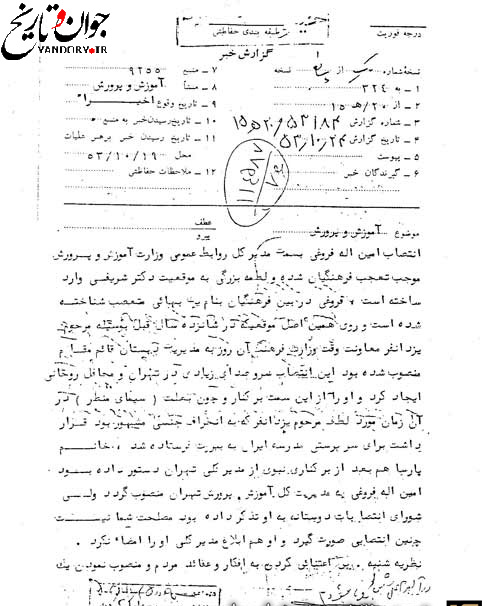 جوان و تاریخ
YANDORY.TR
طبقه بندی حفاظتی
درجه فوریت
گزارش خبر
نسخه شماره یک از پنج نسخه
۷ ـ منبع ۹۲۵۵
۱ ـ به ۳۲۴
۸ ـ منشأ آموزش و پرورش
۲ ـ از ۲۰هـ ۱۵
۹ ـ تاریخ وقوع اخیرا"
۳ ـ شماره گزارش
۱۰ ـ تاریخ رسیدن خبر به منبع
۴ ـ تاریخ گزارش ۵۳٫۱۰٫۲۴
۱۱ ـ تاریخ رسیدن خبر برهبر عملیات
۵ ـ پیوست
محل ۵۳/۱۰/۱۹
۶ ـ گیرندگان خبر
۱۲ ـ ملاحظات حفاظتی
موضوع آموزش و پرورش
عطف
پیرو
انتصاب امین اله فروغی بسمت مدیر کل روابط عمومی وزارت آموزش و پرورش
موجب تعجب فرهنگیان شده و لطمه بزرگی به موقعیت دکتر شریفی وارد
ساخته است فروغی در بین فرهنگیان بنام یک بهائی متعصب شناخته
شده است و روی همین اصل موقعیکه در شانزده سال قبل بوسیله مرحوم
یزدانفر معاونت وقت وزارت فرهنگ آن روز به مدیریت دبیرستان قائم مقام
منصوب شده بود این انتصاب سرو صدای زیادی در تهران و محافل روحانی
ایجاد کرد و او را از این سمت برکنار و چون بعلت ( سیمای منظر ) در
آن زمان مورد لطف مرحوم یزدانفر که به انحراف جنسی مشهور بود قرار
داشت برای سرپرستی مدرسه ایران به بیروت فرستاده شد خانم
پارسا هم بعد از برکناری نیون از مدیر کلی تهران دستور داده بود
امین اله فروغی به مدیریت کل آموزش و پرورش تهران منصوب گردد ولی
شورای انتصابات دوستانه به او تذکر داده بود مصلحت شما نیست
چنین انتصابی صورت گیرد و او هم ابلاغ مدیر کلی او را امضاء نکرد .
نظریه شنبه . بی اعتنایی کردن به افکار و عقائد مردم و منصوب نمودن یک